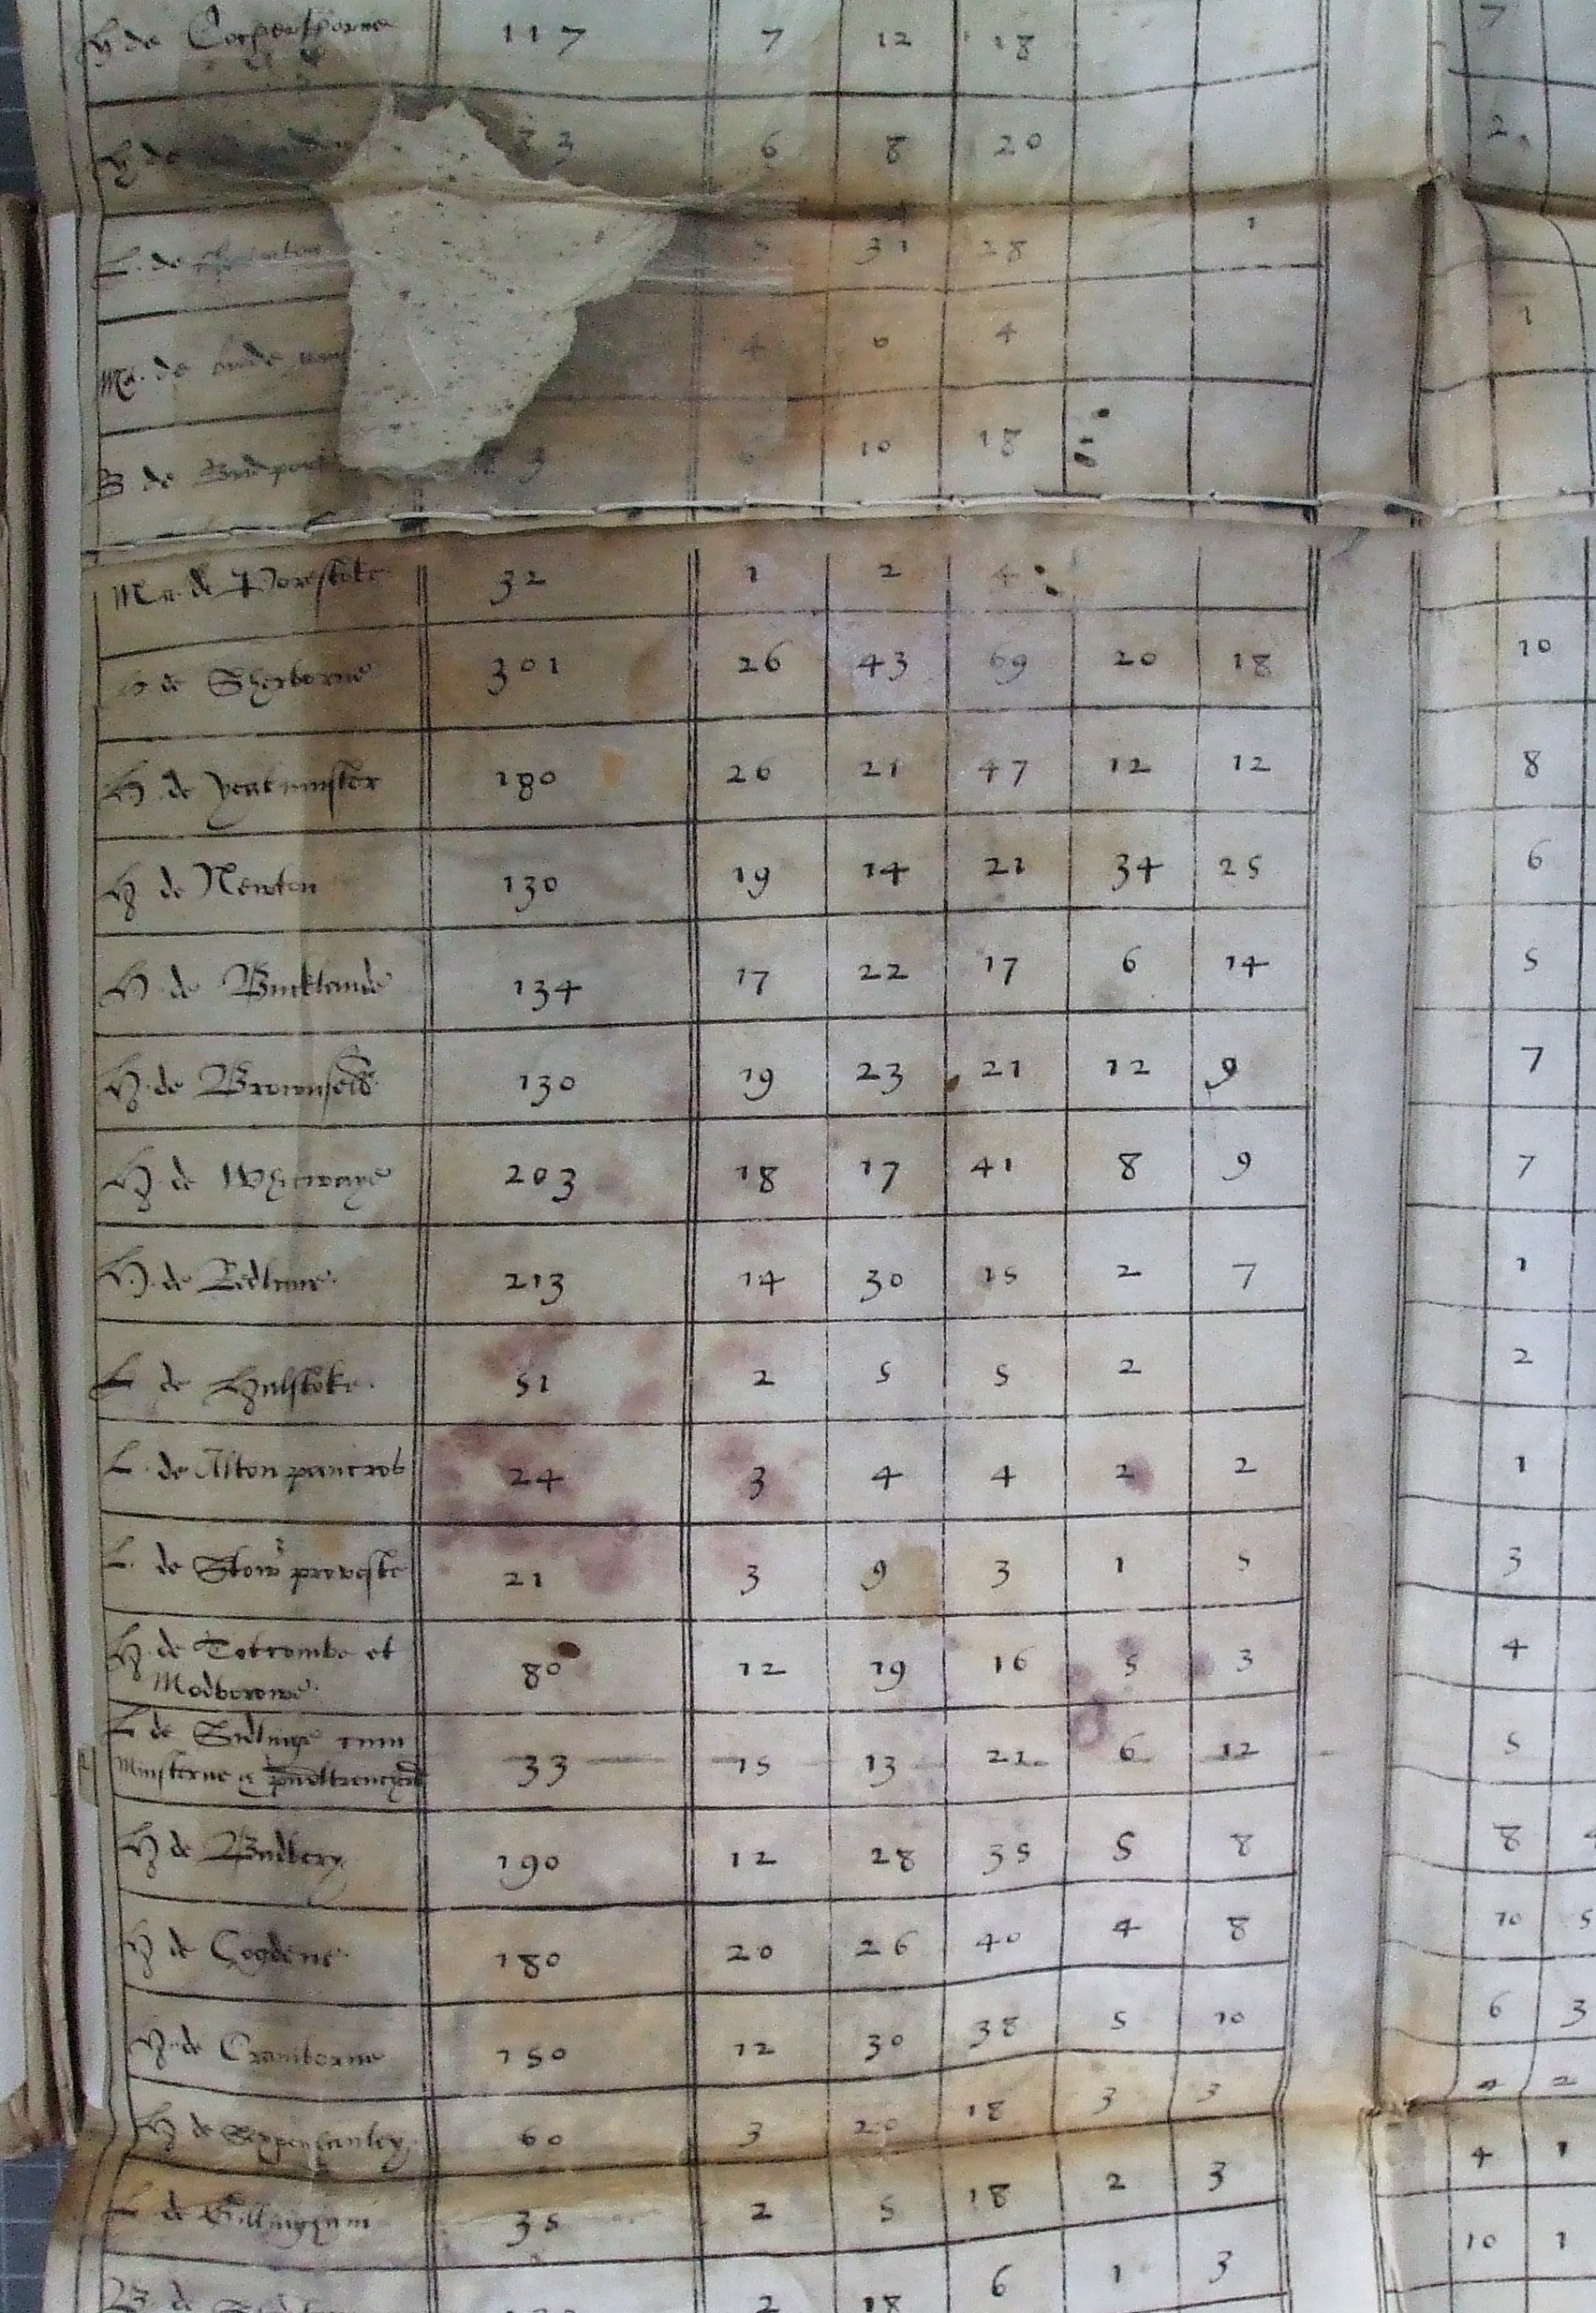 H de 117 7 12 18 7
H de 3 6 8 20 2
L. de 31 28 1
Ma. de 4 6 4 1
B de Bridport 3 10 18
Ma. de Porestoke 32 1 2 4
de Sherborne 301 26 43 69 20 18 10
H. de yeatmister 180 26 21 47 12 12 8
H de Newton 130 19 14 21 34 25 6
H. de Bucklande 134 17 22 17 6 14 5
H. de Brownsell 130 19 23 21 12 9 7
H. de Whitwaye 203 18 17 41 8 9 7
H. de Redlane 213 14 30 15 2 7 1
L de Halstoke. 51 2 5 5 2 2
L. de Alton pancras 24 3 4 4 2 2 1
L. de Stowr preveste 21 3 9 3 1 5 3
H. de Totcombe et
Modborowe 80 12 19 16 5 3 4
L de Sidlinge cum
Minsterne 33 15 13 22 6 12 5
H de Badbery 190 12 28 35 5 8 8
H de Cogdene 180 20 26 40 4 8 10 5
H. de Cramborne 150 12 30 38 5 10 6 3
H de Sexpenhanley 60 3 20 18 3 3 2
L de Gillingham 35 2 5 18 2 3 4 1
B. de 2 18 6 1 3 10 1